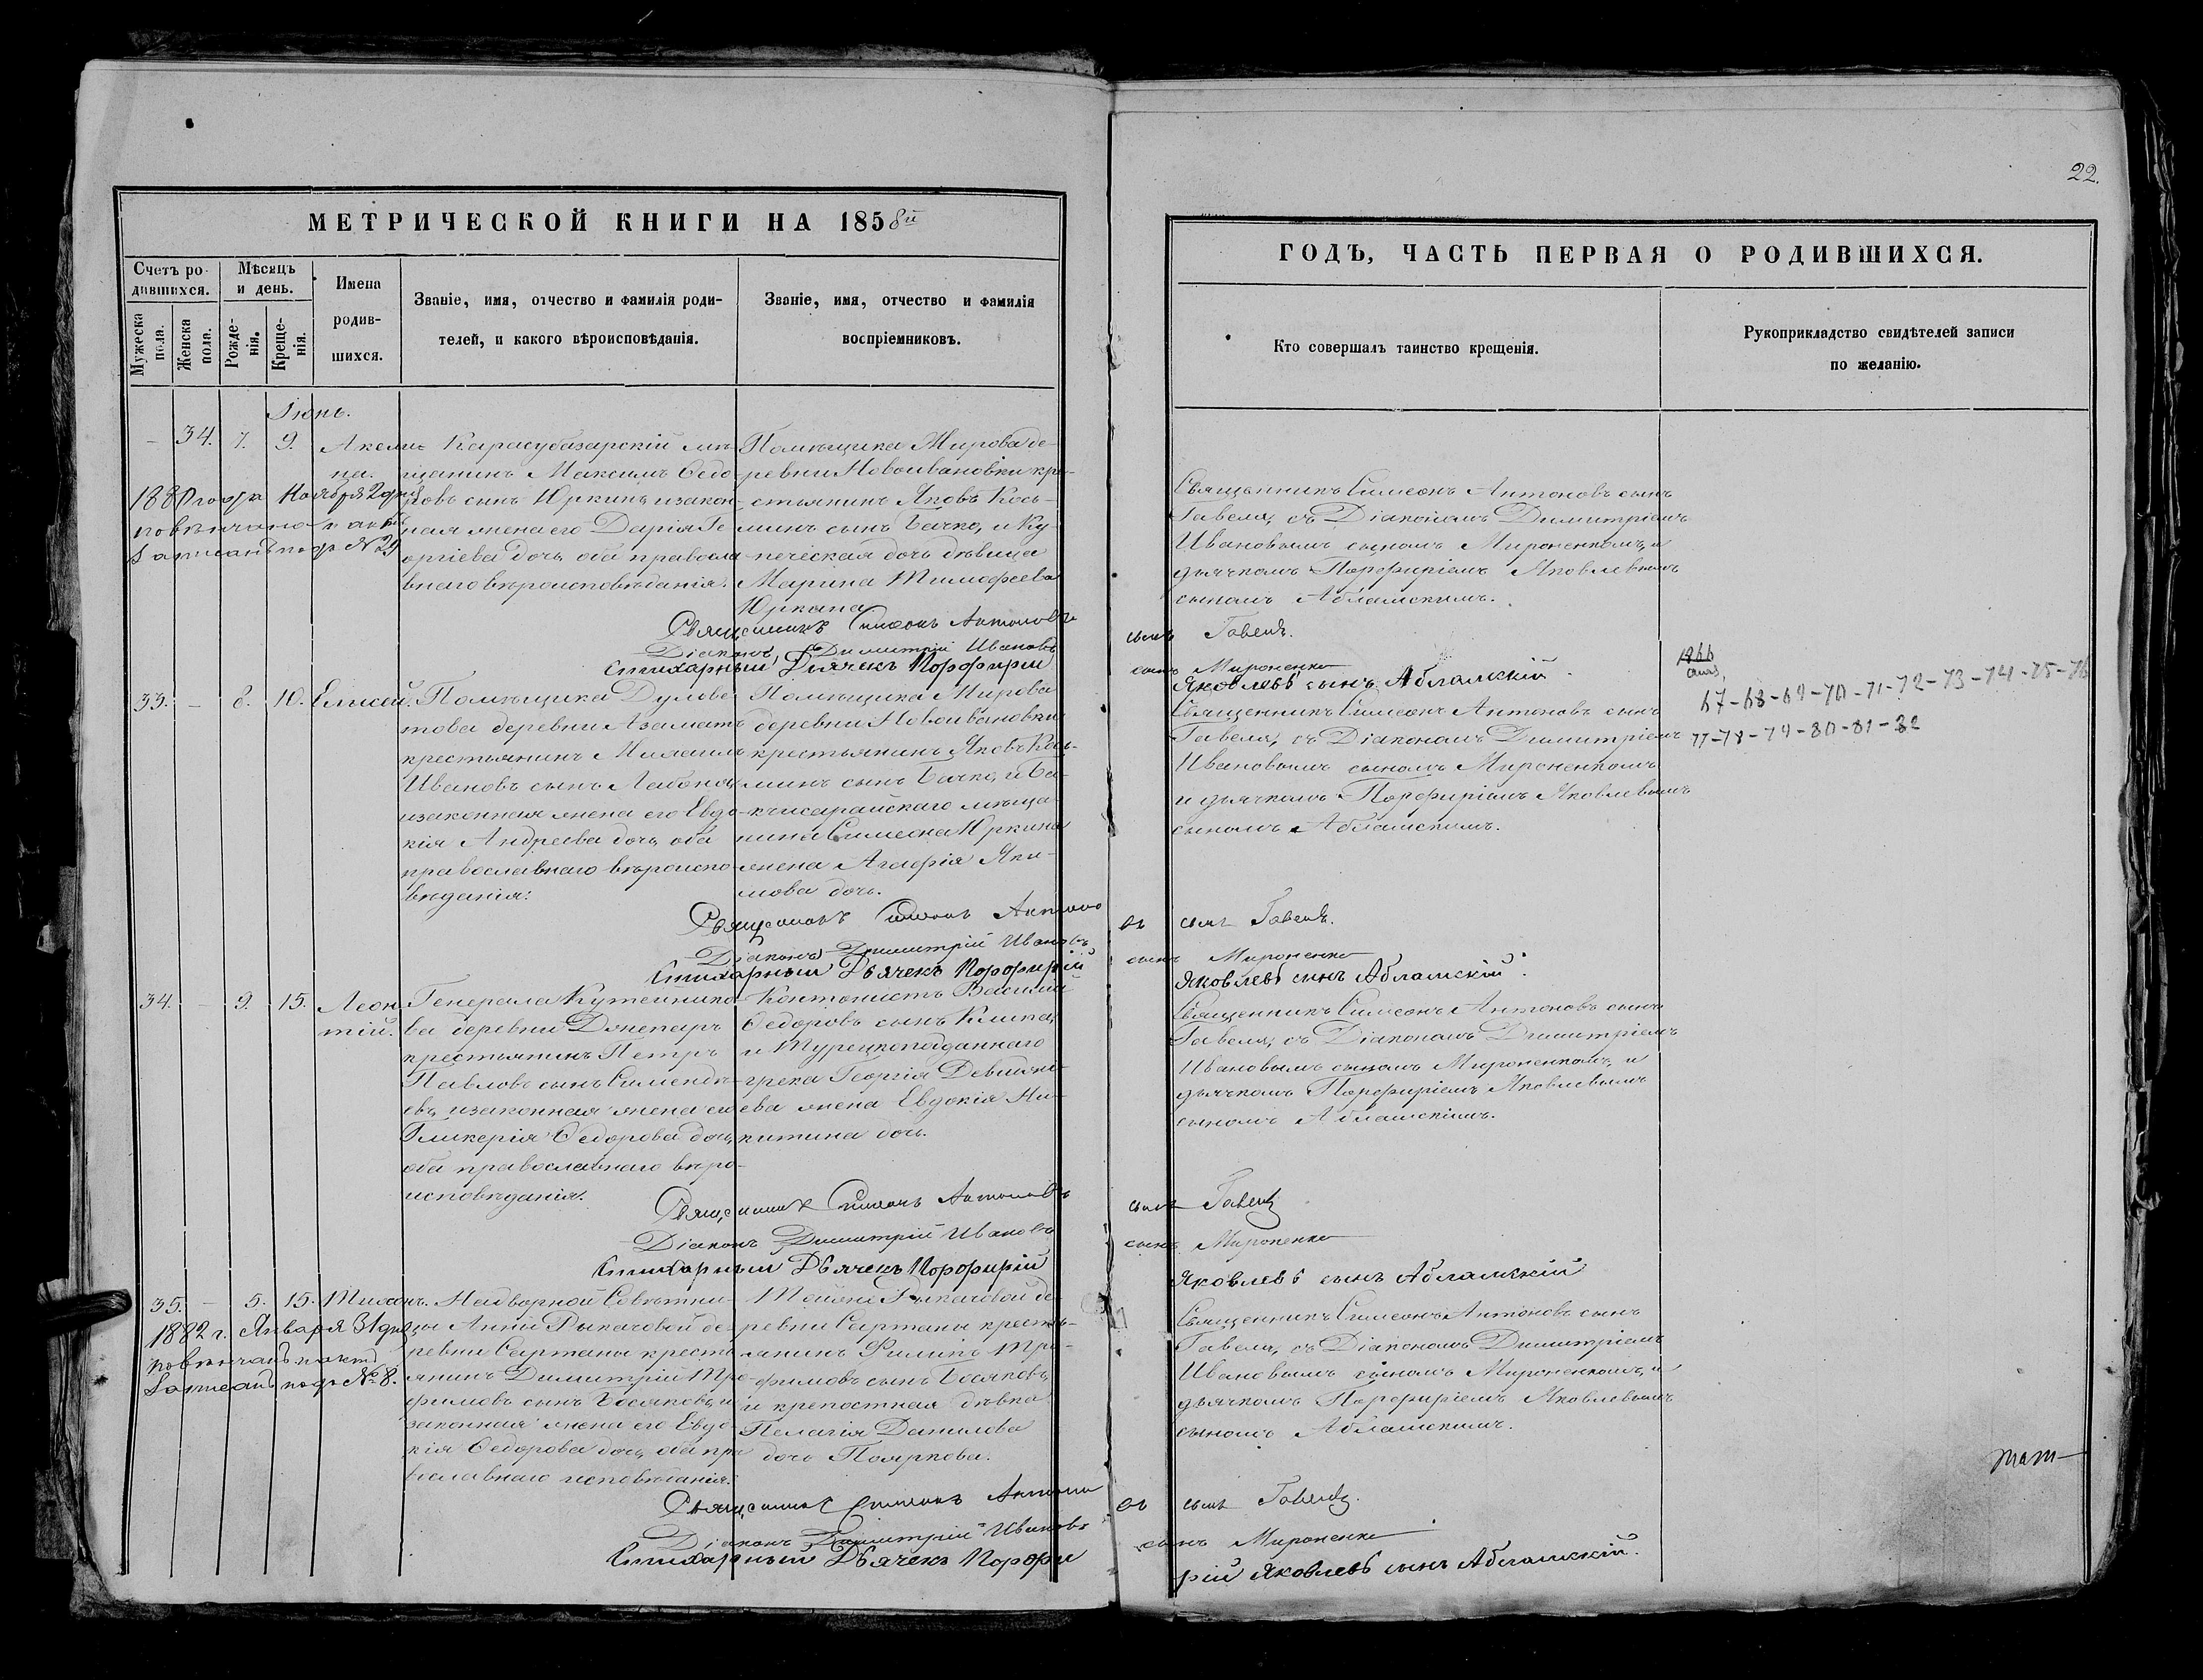 22.
МЕТРИЧЕСКОЙ КНИГИ НА 1858й
ГОДЪ, ЧАСТЬ ПЕРВАЯ О РОДИВШИХСЯ.
Счетъ ро-
дившихся.
Мужеска пола.
Женска пола.
Мѣсяцъ
и день.
Рожде-
нія.
Креще-
нія.
Имена
родив-
шихся.
Званіе, имя, отчество и фамилія роди-
телей, и какого вѣроисповѣданія.
Званіе, имя, отчество и фамилія
воспріемниковъ.
Кто совершалъ таинство крещенія.
Рукоприкладство свидѣтелей записи
по желанію.
Іюнь.
– 34. 7. 9. Акели-
на.
1880 года Ноября 2 дня
повѣнчана и актъ
записанъ подъ № 29
Карасубазарскій мѣ-
щанинъ Максимъ Ѳедо-
ровъ сынъ Юркинъ, изакон-
ная жена его Дарія Ге-
оргіева дочь, оба правосла-
внаго вѣроисповѣданія.
Помѣщика Мирова де-
ревни Новоивановки кре-
стьянинъ Яковъ Кось-
минъ сынъ Бачко, и Ку-
печеская дочь дѣвица
Марина Тимофеева
Юркина
Священникъ Симеонъ Антоновъ сынъ
Гавеля, съ Діакономъ Димитріемъ
Ивановымъ сыномъ Мироненкомъ, и
дьячкомъ Порфиріемъ Яковлевымъ
сыномъ Абламскимъ.
Священникъ Симеонъ Антоновъ сынъ Гавель.
Діаконъ Димитрій Ивановъ сынъ Мироненко
Стихарный Дьячекъ Порфирій Яковлевъ сынъ Абламскій.
1866
67-68-69-70-71-72-73-74-75-76
77-78-79-80-81-82
33. – 8. 10. Елисей.
Помѣщика Дулове-
това деревни Азаматъ
крестьянинъ Михаилъ
Ивановъ сынъ
изаконная жена его Евдо-
кія Андреева дочь, оба
православнаго вѣроиспо-
вѣданія:
Помѣщика Мирова
деревни Новоивановки
крестьянинъ Яковъ Кось-
минъ сынъ Бачко, и Ба-
кчисарайскаго мѣща-
нина Симеона Юркина
жена Агафія Яки-
мова дочь.
Священникъ Симеонъ Антоновъ сынъ
Гавеля, съ Діакономъ Димитріемъ
Ивановымъ сыномъ Мироненкомъ
и дьячкомъ Порфиріемъ Яковлевымъ
сыномъ Абламскимъ.
Священникъ Симеонъ Антоновъ сынъ Гавель.
Діаконъ Димитрій Ивановъ сынъ Мироненко
Стихарный Дьячекъ Порфирій Яковлевъ сынъ Абламскій.
34. – 9. 15. Леон-
тій.
Генерала Кутейнико-
ва деревни Джепаръ
крестьянинъ Петръ
Павловъ сынъ
евъ, изаконная жена его
Гликерія Ѳедорова дочь,
оба православнаго вѣро-
исповѣданія.
Кантонистъ Василій
Ѳедоровъ сынъ Клипа,
и Турецкоподданнаго
грека Георгія
ева жена Евдокія Ни-
китина дочь.
Священникъ Симеонъ Антоновъ сынъ
Гавеля, съ Діакономъ Димитріемъ
Ивановымъ сыномъ Мироненкомъ, и
дьячкомъ Порфиріемъ Яковлевымъ
сыномъ Абламскімъ.
Священникъ Симеонъ Антоновъ сынъ Гавель
Діаконъ Димитрій Ивановъ сынъ Мироненко
Стихарный Дьячекъ Порфирій Яковлевъ сынъ Абламскій
35. – 5. 15. Тихонъ.
1882 г. Января 31 дня
повѣнчанъ и актъ
записанъ подъ № 8.
Надворной Совѣтни-
цы Анны Рыкачовой де-
ревни Сартаны кресть-
янинъ Димитрій Тро-
фимовъ сынъ Босяковъ, и
законная жена его Евдо-
кія Ѳедорова дочь, оба пра-
вославнаго исповѣданія:
Тойже Рыкачовой де-
ревни Сартаны кресть-
янинъ Филипъ Тро-
фимовъ сынъ Босяковъ,
и крепостная дѣвка
Пелагія Данилова
дочь Пояркова.
Священникъ Симеонъ Антоновъ сынъ
Гавеля, съ Діакономъ Димитріемъ
Ивановымъ сыномъ Мироненкомъ, и
дьячкомъ Порфиріемъ Яковлевымъ
сыномъ Абламскимъ.
Священникъ Симеонъ Антоновъ сынъ Гавель.
Діаконъ Димитрій Ивановъ сынъ Мироненко
Стихарный Дьячекъ Порфирій Яковлевъ сынъ Абламскій.